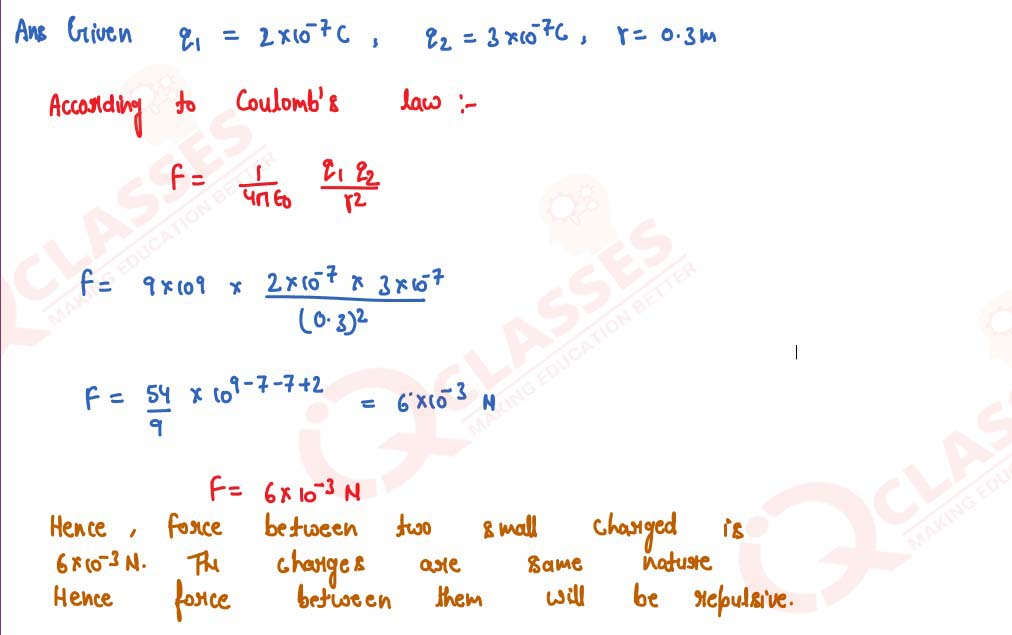 Ans Given q₁ = 2×10⁻⁷C , q₂ = 3×10⁻⁷C , r = 0.3m
According to Coulomb's law :-
F = 1/4πε₀ q₁ q₂/r²
F = 9×109 × 2×10⁻⁷ × 3×10⁻⁷/(0.3)²
F = 54/9 × 10⁹⁻⁷⁻⁷⁺² = 6×10⁻³ N
F = 6×10⁻³ N
Hence , force between two small charged is
6×10⁻³ N. Th charges are same nature
Hence force between them will be repulsive.
CLASSES
MAKING EDUCATION BETTER
CLASSES
MAKING EDUCATION BETTER
CLASSES
MAKING EDUC